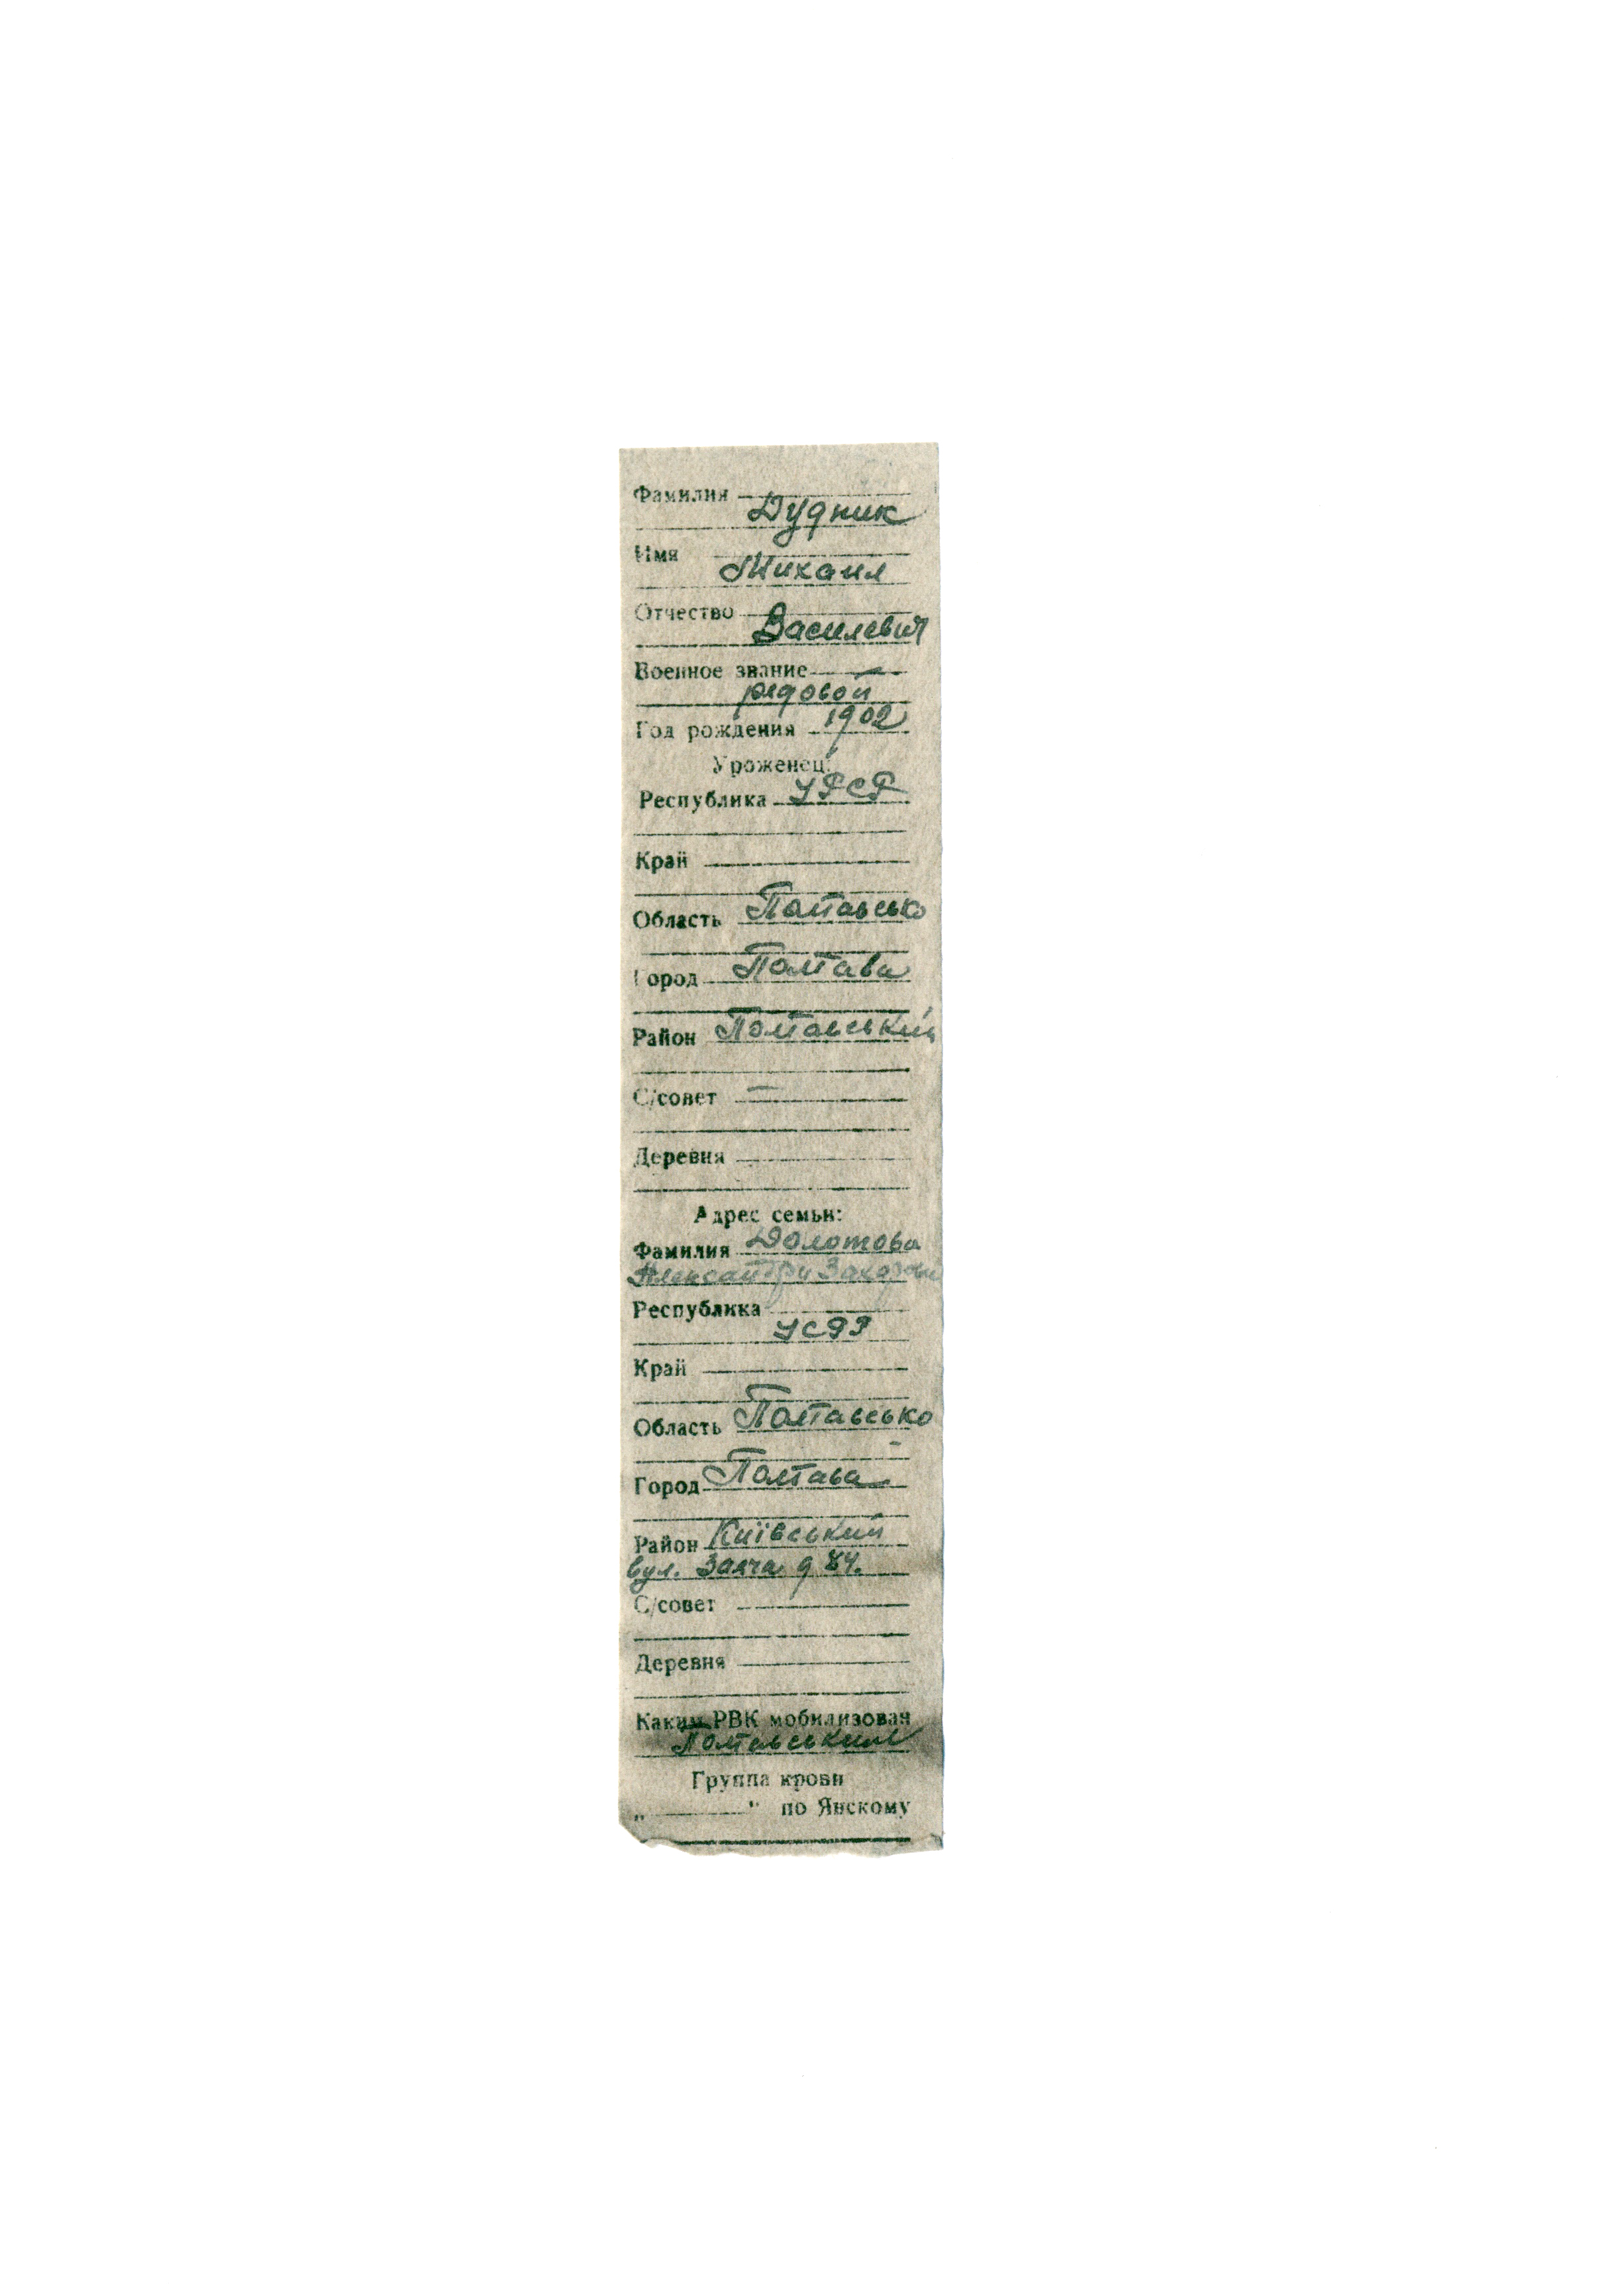 Фамилия
Дудник
Имя
Михаил
Отчество
Василевич
Военное звание
рядовой
Год рождения 1902
Уроженец:
Республика УРСР
Край
Область Полтавсько
Город Полтава
Район Полтавський
С/совет —
Деревня
Адрес семьи:
Фамилия Долотова
Александри
Республика
УСРР
Край
Область Полтавсько
Город Полтава
Район Київський
вул. д 84.
С/совет
Деревня
Каким РВК мобилизован
Полтавським
Группа крови
„ " по Янскому